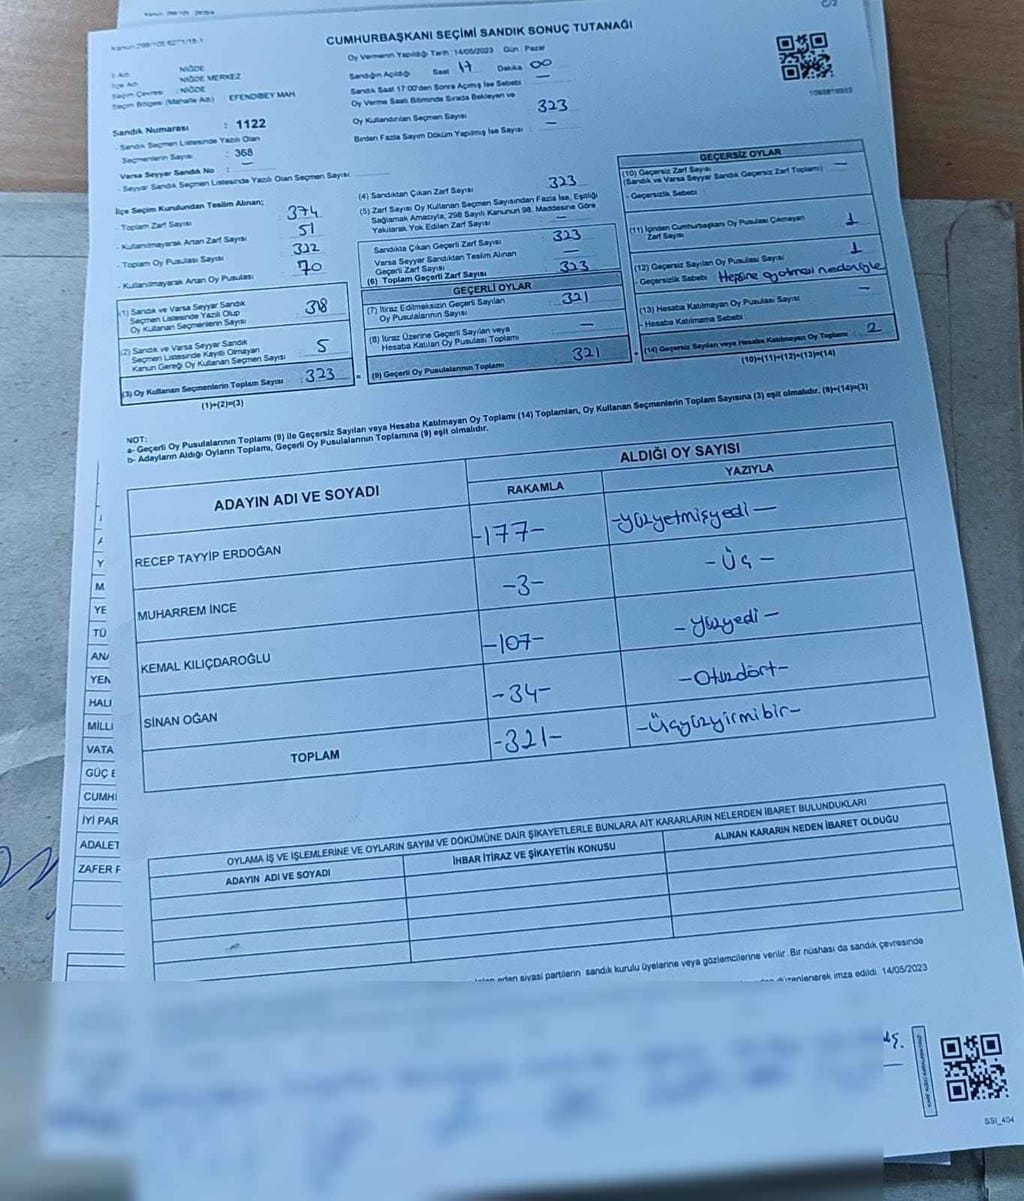 CUMHURBAŞKANI SEÇİMİ SANDIK SONUÇ TUTANAĞI
İl Adı NİĞDE
İlçe Adı NİĞDE MERKEZ
Seçim Çevresi : NİĞDE
Seçim Bölgesi (Mahalle Adı) EFENDİBEY MAH.
Sandık Numarası : 1122
Sandık Seçmen Listesinde Yazılı Olan
Seçmenlerin Sayısı : 368
Varsa Seyyar Sandık No : —
Seyyar Sandık Seçmen Listesinde Yazılı Olan Seçmen Sayısı:
Oy Vermenin Yapıldığı Tarih : 14/05/2023 Gün : Pazar
Sandığın Açıldığı Saat 17 Dakika 00
Sandık Saat 17:00'den Sonra Açılmış İse Sebebi —
Oy Verme Saati Bitiminde Sırada Bekleyen ve
Oy Kullandırılan Seçmen Sayısı 323
Birden Fazla Sayım Döküm Yapılmış İse Sayısı : —
İlçe Seçim Kurulundan Teslim Alınan;
- Toplam Zarf Sayısı 374
- Kullanılmayarak Artan Zarf Sayısı 51
- Toplam Oy Pusulası Sayısı 322
- Kullanılmayarak Artan Oy Pusulası 70
(1) Sandık ve Varsa Seyyar Sandık
Seçmen Listesinde Yazılı Olup
Oy Kullanan Seçmenlerin Sayısı 318
(2) Sandık ve Varsa Seyyar Sandık
Seçmen Listesinde Kayıtlı Olmayan
Kanun Gereği Oy Kullanan Seçmen Sayısı 5
(3) Oy Kullanan Seçmenlerin Toplam Sayısı : 323
(1)+(2)=(3)
(4) Sandıktan Çıkan Zarf Sayısı 323
(5) Zarf Sayısı Oy Kullanan Seçmen Sayısından Fazla İse, Eşitliği
Sağlamak Amacıyla, 298 Sayılı Kanunun 98. Maddesine Göre
Yakılarak Yok Edilen Zarf Sayısı —
Sandıkta Çıkan Geçerli Zarf Sayısı 323
Varsa Seyyar Sandıktan Teslim Alınan
Geçerli Zarf Sayısı —
(6) Toplam Geçerli Zarf Sayısı 323
GEÇERLİ OYLAR
(7) İtiraz Edilmeksizin Geçerli Sayılan
Oy Pusulalarının Sayısı 321
(8) İtiraz Üzerine Geçerli Sayılan veya
Hesaba Katılan Oy Pusulası Toplamı —
(9) Geçerli Oy Pusulalarının Toplamı 321
GEÇERSİZ OYLAR
(10) Geçersiz Zarf Sayısı —
(Sandık ve Varsa Seyyar Sandık Geçersiz Zarf Toplamı)
- Geçersizlik Sebebi
(11) İçinden Cumhurbaşkanı Oy Pusulası Çıkmayan
Zarf Sayısı 1
(12) Geçersiz Sayılan Oy Pusulası Sayısı 1
- Geçersizlik Sebebi Hepsine oy atması nedeniyle
(13) Hesaba Katılmayan Oy Pusulası Sayısı —
- Hesaba Katılmama Sebebi
(14) Geçersiz Sayılan veya Hesaba Katılmayan Oy Toplamı 2
(10)+(11)+(12)+(13)=(14)
NOT:
a- Geçerli Oy Pusulalarının Toplamı (9) ile Geçersiz Sayılan veya Hesaba Katılmayan Oy Toplamı (14) Toplamları, Oy Kullanan Seçmenlerin Toplam Sayısına (3) eşit olmalıdır. (9)+(14)=(3)
b- Adayların Aldığı Oyların Toplamı, Geçerli Oy Pusulalarının Toplamına (9) eşit olmalıdır.
ADAYIN ADI VE SOYADI
ALDIĞI OY SAYISI
RAKAMLA YAZIYLA
RECEP TAYYİP ERDOĞAN -177- -yüzyetmişyedi-
MUHARREM İNCE -3- -Üç-
KEMAL KILIÇDAROĞLU -107- -yüzyedi-
SİNAN OĞAN -34- -Otuzdört-
TOPLAM -321- -Üçyüzyirmibir-
OYLAMA İŞ VE İŞLEMLERİNE VE OYLARIN SAYIM VE DÖKÜMÜNE DAİR ŞİKAYETLERLE BUNLARA AİT KARARLARIN NELERDEN İBARET BULUNDUKLARI
ADAYIN ADI VE SOYADI İHBAR İTİRAZ VE ŞİKAYETİN KONUSU ALINAN KARARIN NEDEN İBARET OLDUĞU
eden siyasi partilerin sandık kurulu üyelerine veya gözlemcilerine verilir. Bir nüshası da sandık çevresinde
düzenlenerek imza edildi. 14/05/2023
YE
TÜ
YEN
HALI
MİLLİ
VATA
GÜÇ B
CUMHI
İYİ PAR
ADALET
ZAFER F
SSI_404